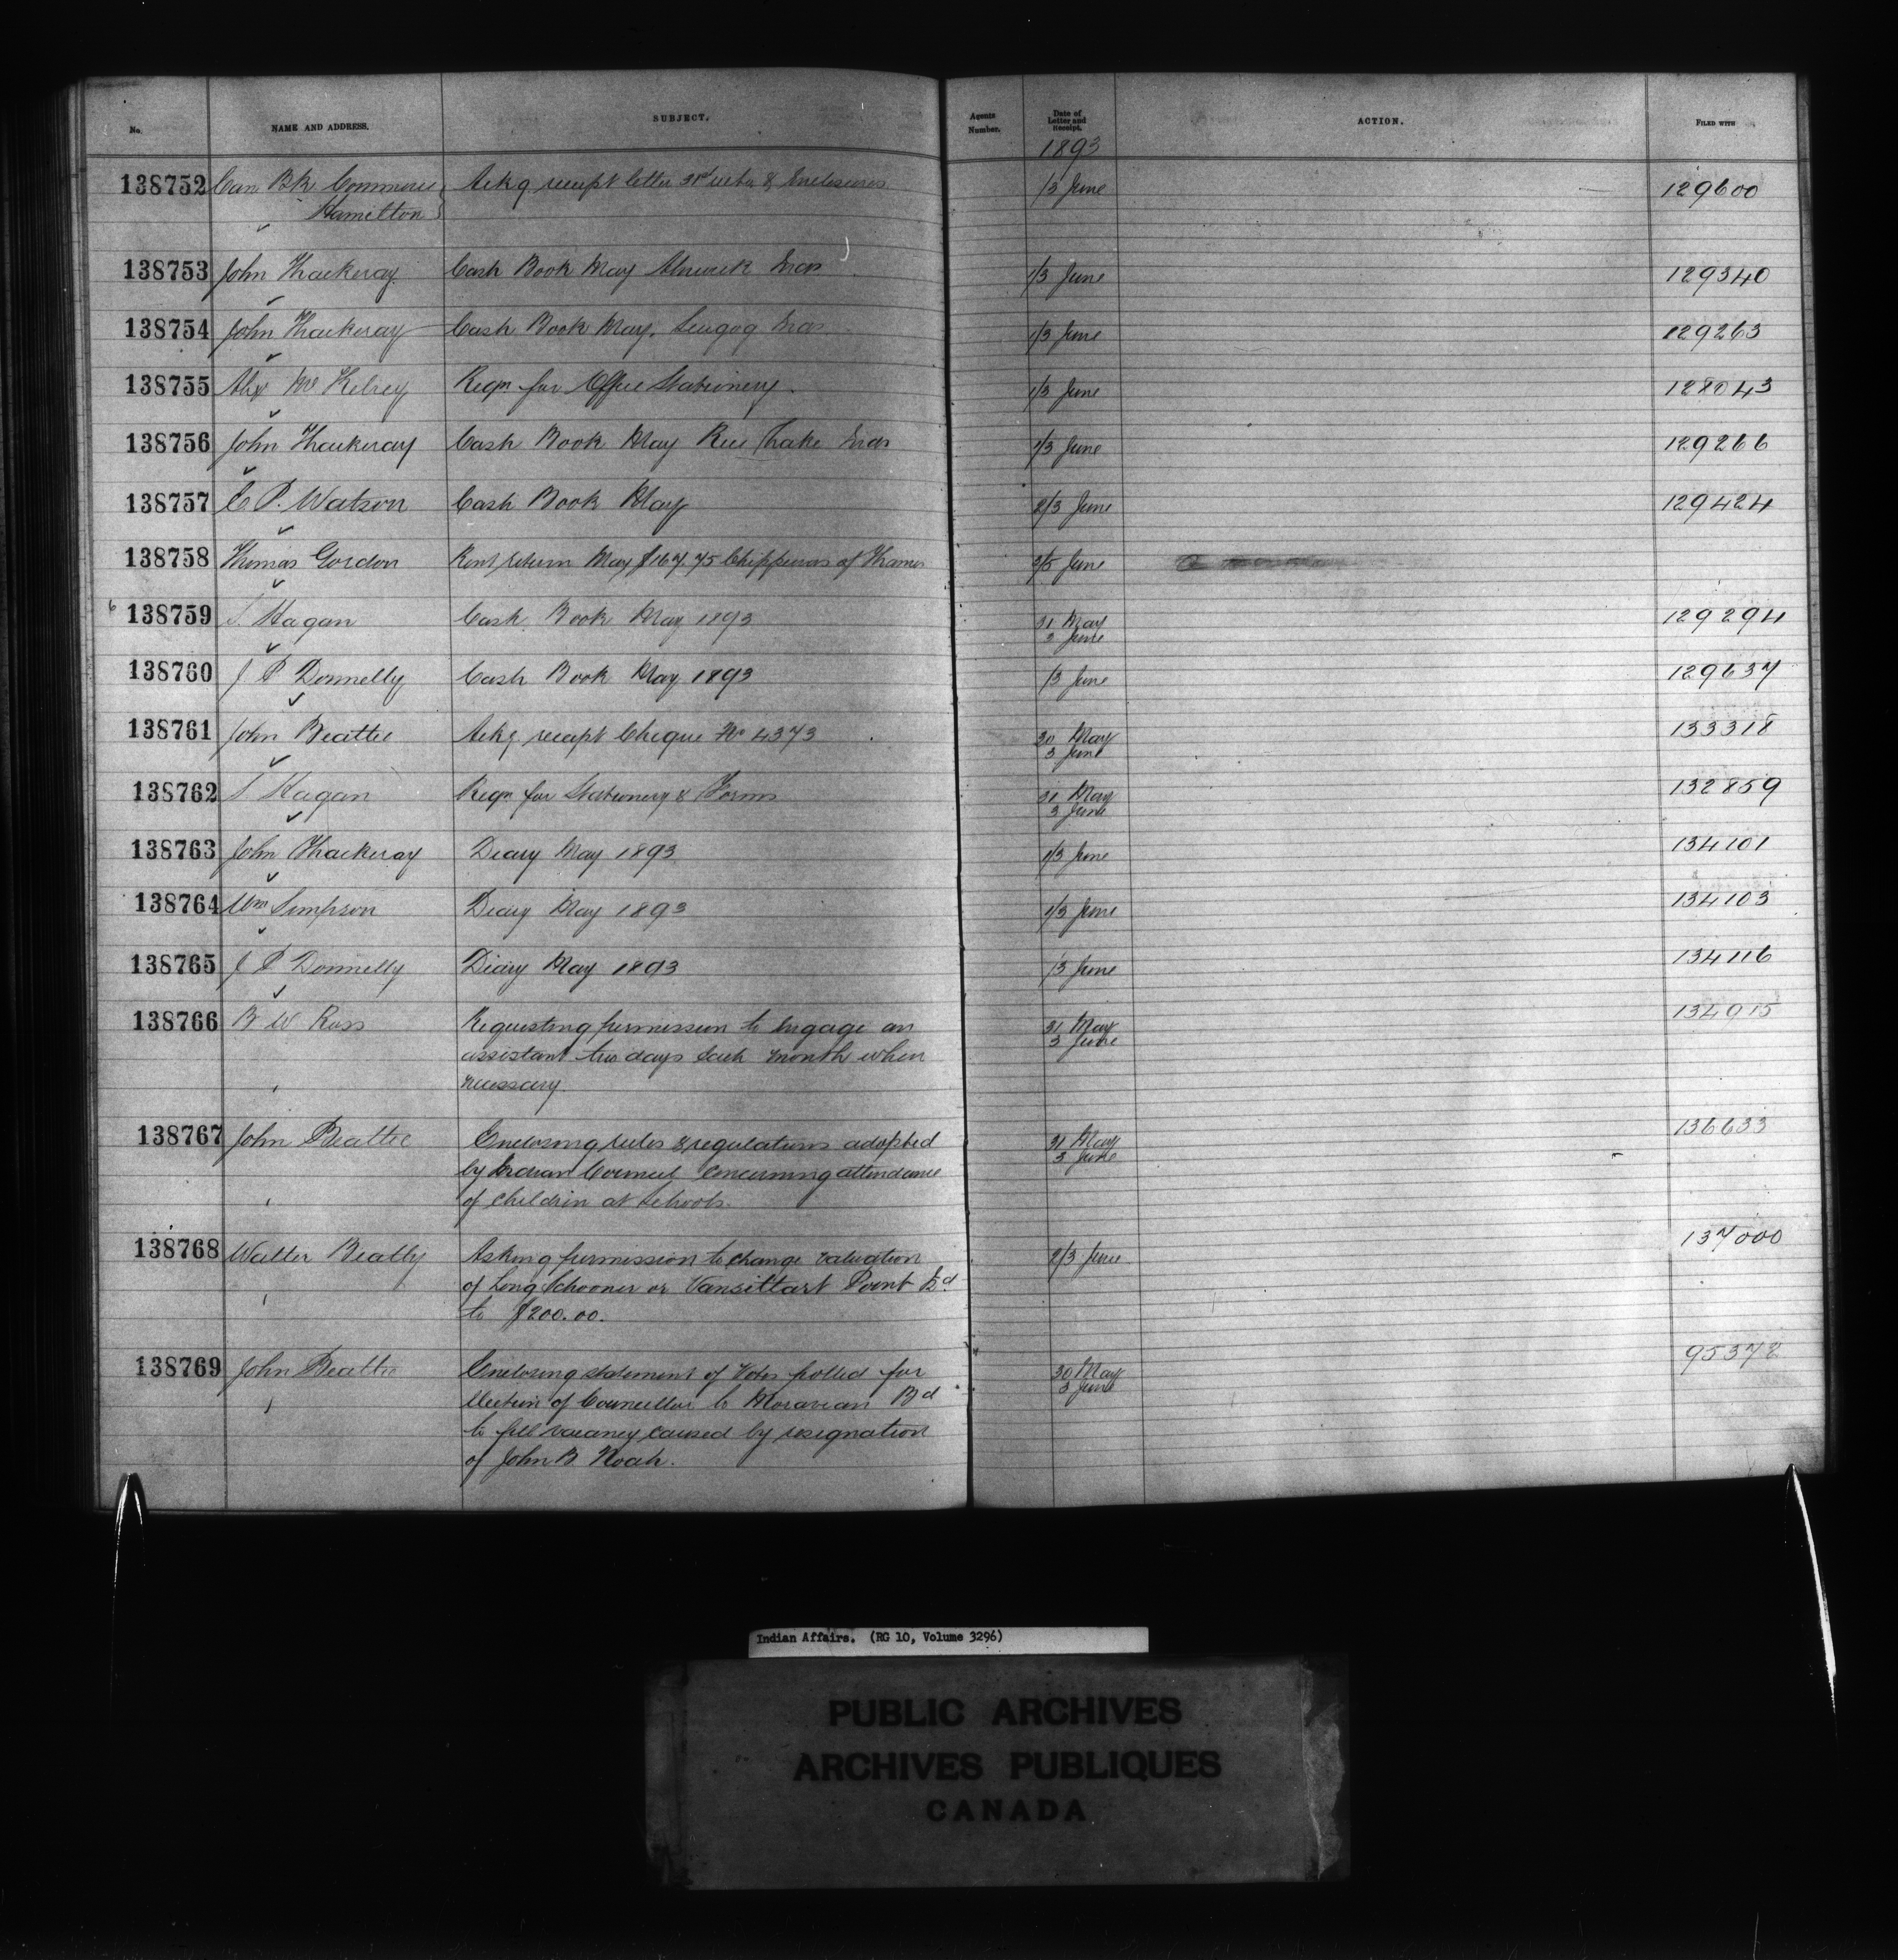 No. NAME AND ADDRESS. SUBJECT. Agents Number. Date of Letter and Receipt. ACTION. FILED WITH
1893
138752 Can Bk Commerce Ackg receipt letter 31st ulto & Enclosures 1/3 June 129600
Hamilton
138753 John Thackeray Cash Book May Alnwick Inds 1/3 June 129340
138754 John Thackeray Cash Book May. Scugog Inds 1/3 June 129263
138755 Alex McKelvey Reqn for Office Stationery. 1/3 June 128043
138756 John Thackeray Cash Book May Rice Lake Inds 1/3 June 129266
138757 C P. Watson Cash Book May 2/3 June 129424
138758 Thomas Gordon Rent return May $167.75 Chippewas of Thames 3/5 June
6 138759 T. Hagan Cash Book May 1893 31 May 129294
3 June
138760 J P Donnelly Cash Book May 1893 1/3 June 129637
138761 John Beattie Ackg receipt Cheque No 4373 30 May 133318
3 June
138762 T Hagan Reqn for Stationery & Forms 31 May 132859
3 June
138763 John Thackeray Diary May 1893 1/3 June 134101
138764 Wm Simpson Diary May 1893 1/3 June 134103
138765 J P Donnelly Diary May 1893 1/3 June 134116
138766 B W Ross Requesting permission to Engage an 31 May 134915
assistant two days Each month when 3 June
necessary.
138767 John Beattie Enclosing rules & regulations adopted 31 May 136633
by Indian Council Concerning attendance 3 June
of Children at Schools.
138768 Walter Beatty Asking permission to change valuation 2/3 June 137000
of Long Schooner or Vansittart Point Id.
to $200.00.
138769 John Beattie Enclosing statement of Votes polled for 30 May 95372
Election of Councillor to Moravian Bd 3 June
to fill vacancy caused by resignation
of John B. Noah.
Indian Affairs. (RG 10, Volume 3296)
PUBLIC ARCHIVES
ARCHIVES PUBLIQUES
CANADA